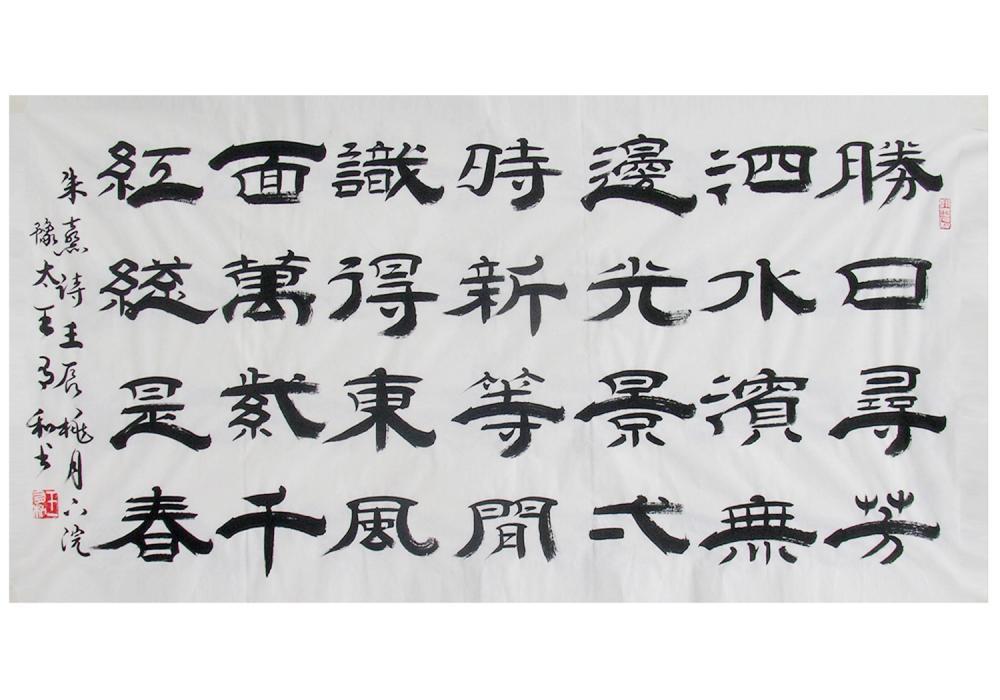 勝日尋芳
泗水濱無
邊光景弌
時新等閒
識得東風
面萬紫千
紅總是春
朱熹詩壬辰桃月下浣
豫太王和书